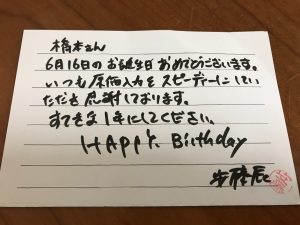 橋本さん
6月16日のお誕生日おめでとうございます。
いつも原価入力をスピーディーにしてい
ただき感謝しております。
すてきな1年にしてください。
HAPPY Birthday
安藤辰